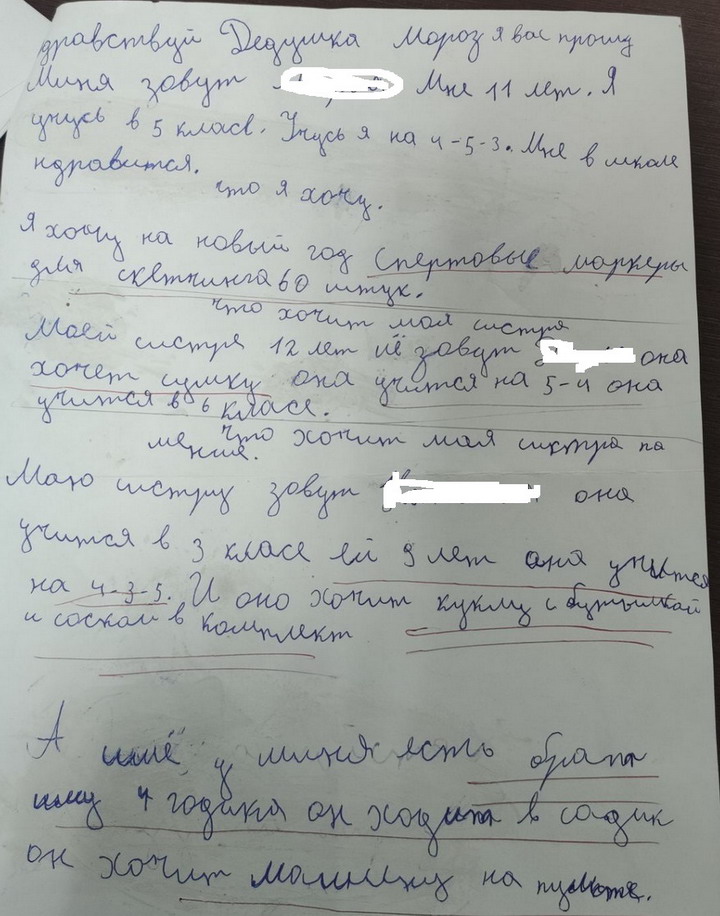 дравствуй Дедушка Мороз я вас прошу
Миня зовут Мне 11 лет. Я
учусь в 5 класе. Учусь я на 4-5-3. Мне в школе
ндравится.
что я хочу.
Я хочу на новый год спертовые маркеры
для скетчинга 60 штук.
что хочит мая систра
Маей систре 12 лет её зовут она
хочет сумку она учится на 5-4 она
учится в 6 класе.
что хочит мая систра па
меньше.
Маю систру зовут она
учится в 3 класе ей 9 лет она учится
на 4-3-5. И оно хочит куклу с бутылкай
и соскай в комплект
А ишё у миня есть братт
иму 4 годика он ходит в садик
он хочит машинку на пульте.